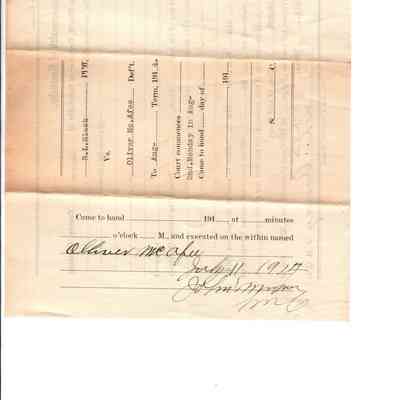 S.L.Sisok Pl'ff.
Vs.
Oliver Mc.Afee Def't.
To Aug- Term, 191 4.
Court commences
2nd.Monday in Aug-
Came to hand day of
191
S. C.
Came to hand 191 at minutes
o'clock M., and executed on the within named
Oliver McAfee
July 11, 1914
John